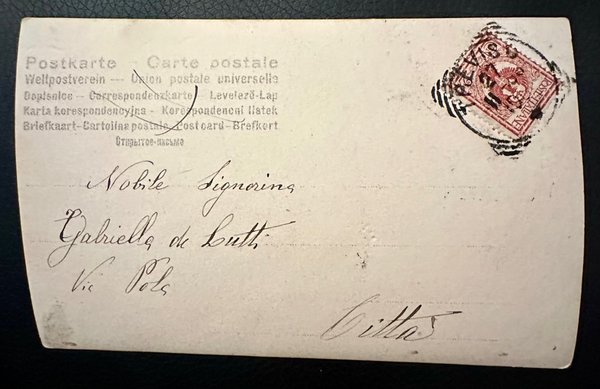 Postkarte — Carte postale
Weltpostverein — Union postale universelle
Dopisnice — Correspondenzkarte — Levelező-Lap
Karta korespondencyjna — Korespondencni listek
Briefkaart — Cartolina postale — Post card — Brefkort
Открытое-письмо
TREVISO
Nobile Signorina
Gabriella de Lutti
Via Pola
Città